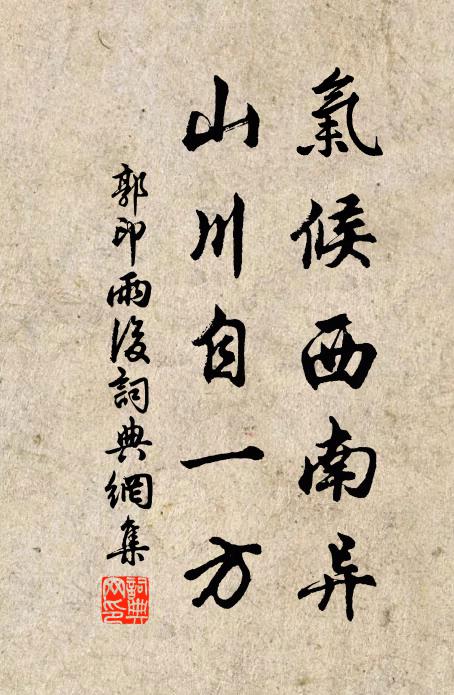 氣候西南异
山川自一方
郭印雨後詞典網集
詞典網印